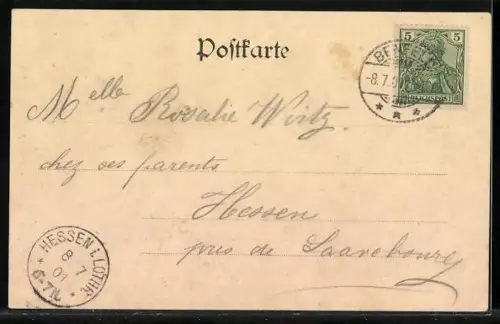 Postkarte
5 5
REICHSPOST
-8.7.
Melle Rosalie Wirtz
chez ses parents
Hessen
près de Saarebourg
HESSEN i. LOTHR.
8 7
01
6-7N.